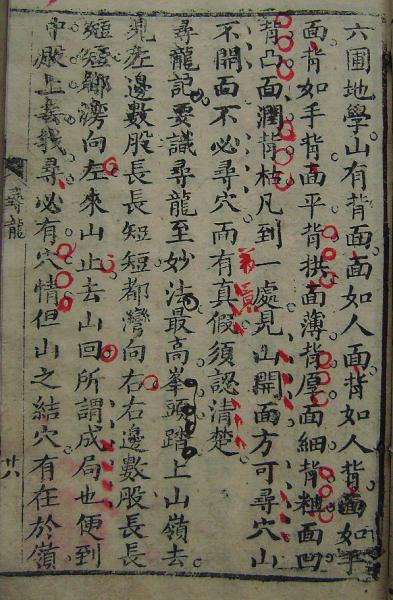 六圃地學山有背面面如人面背如人背面如手
面背如手背面平背拱面薄背厚面細背粗面凹
背凸面潤背枯凡到一處見山開面方可尋穴山
不開面不必尋穴而有真假須認清楚
尋龍記要識尋龍至妙法最高峯頭踏上山嶺去
見左邊數股長長短短都灣向右右邊數股長長
短短都灣向左來山止去山回所謂成局也便到
中殿上去找尋必有穴情但山之結穴有在於嶺
尋龍
廿八